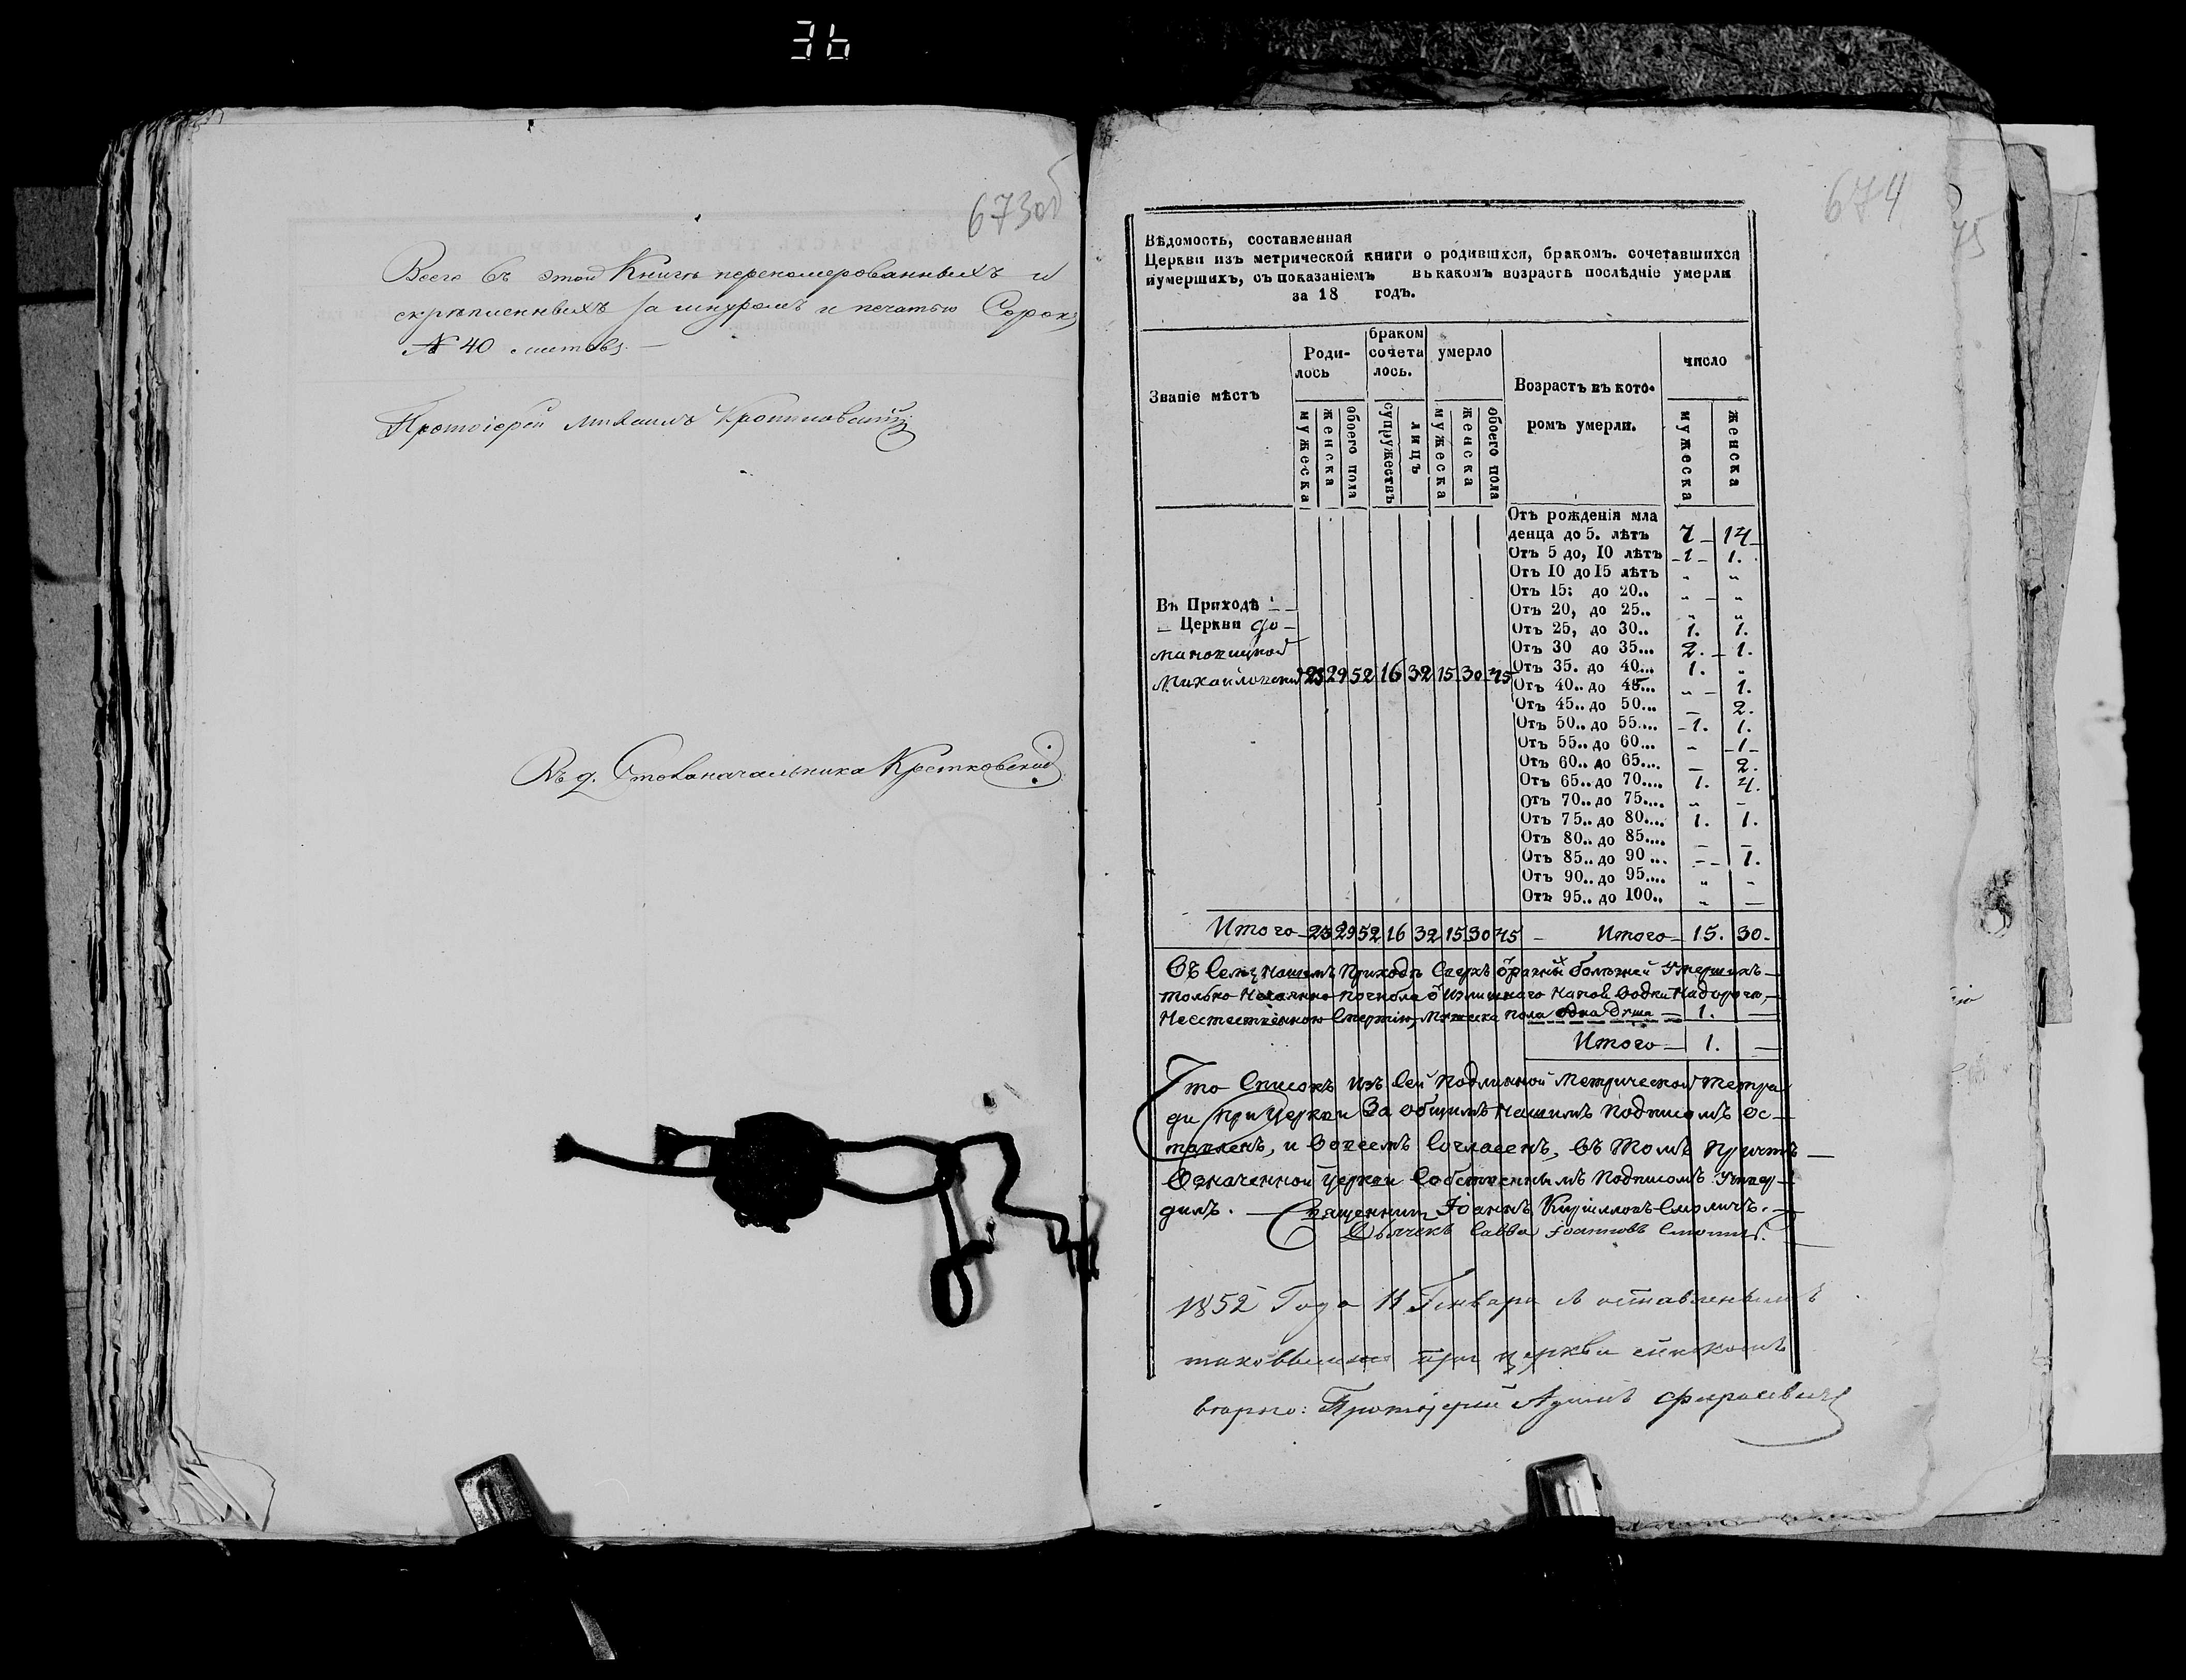 36
673об
Всего въ этой Книгѣ переномерованныхъ и
скрѣпленныхъ за шнуромъ и печатью Сорокъ
№ 40 листовъ. —
Протоіерей Михаилъ
Въ д. Столоначальника Крестковскій
674
75
Вѣдомость, составленная
Церкви изъ метрической книги о родившхся, бракомъ. сочетавшихся
иумершихъ, съ показаніемъ въ какомъ возрастѣ послѣдніе умерли
за 18 годъ.
Званіе мѣстъ
Роди-
лось
браком
сочета
лось.
умерло
Возрастъ въ кото-
ромъ умерли.
число
мужеска женска обоего пола супружествъ лицъ мужеска женска обоего пола мужеска женска
Отъ рожденія мла
денца до 5. лѣтъ 7 14
Отъ 5 до, 10 лѣтъ 1 1.
Отъ 10 до 15 лѣтъ " "
Отъ 15: до 20.. " "
Отъ 20, до 25.. " "
Отъ 25, до 30.. 1. 1.
Отъ 30 до 35... 2. 1.
Отъ 35. до 40... 1. "
Отъ 40.. до 45... " 1.
Отъ 45.. до 50... — 2.
Отъ 50.. до 55.... 1. 1.
Отъ 55.. до 60... - 1
Отъ 60.. до 65.... — 2.
Отъ 65.. до 70.... 1. 4.
Отъ 70.. до 75.... " -
Отъ 75.. до 80.... 1. 1.
Отъ 80.. до 85.... — —
Отъ 85.. до 90 ... - - 1.
Отъ 90.. до 95.... " -
Отъ 95.. до 100.. " —
Въ Приходѣ
Церкви
Михайловской 23 29 52 16 32 15 30 45
Итого 23 29 52 16 32 15 30 45 — Итого 15. 30.
Въ Семъ Нашемъ Приходѣ Сверхъ болѣзней Умершихъ —
только Нечаянно погибла Излишняго Водки
Неестественною Смертію, Мужеска пола одна Душа — 1. —
Итого — 1. —
Что Списокъ изъ Сей Подлинной Метрической Тетра
ди при Церкви За общимъ Нашимъ Подписомъ Ос-
тавленъ, и Вовсемъ Согласенъ, Въ Томъ Причтъ —
Означенной Церкви Собственнымъ Подписомъ Утвер-
димъ. — Священникъ Іоаннъ Кирилловъ Смоличъ. —
Дьячекъ Савва Іоанновъ Смоличъ.
1852 Года 11 Генваря оставленнымъ
таковымъ при церкви спискомъ
Протоіерей